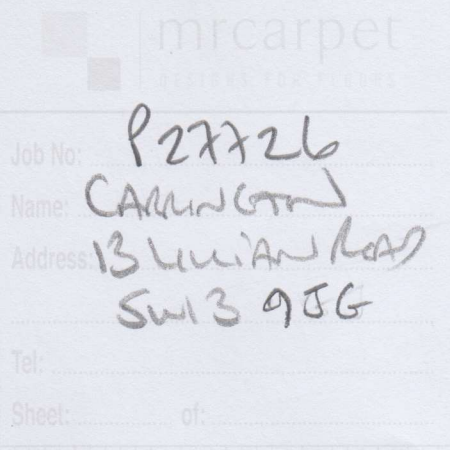 mrcarpet
DESIGNS FOR FLOORS
Job No: P27726
Name: CARRINGTON
Address: 13 LILLIAN ROAD
SW13 9JG
Tel:
Sheet: of: